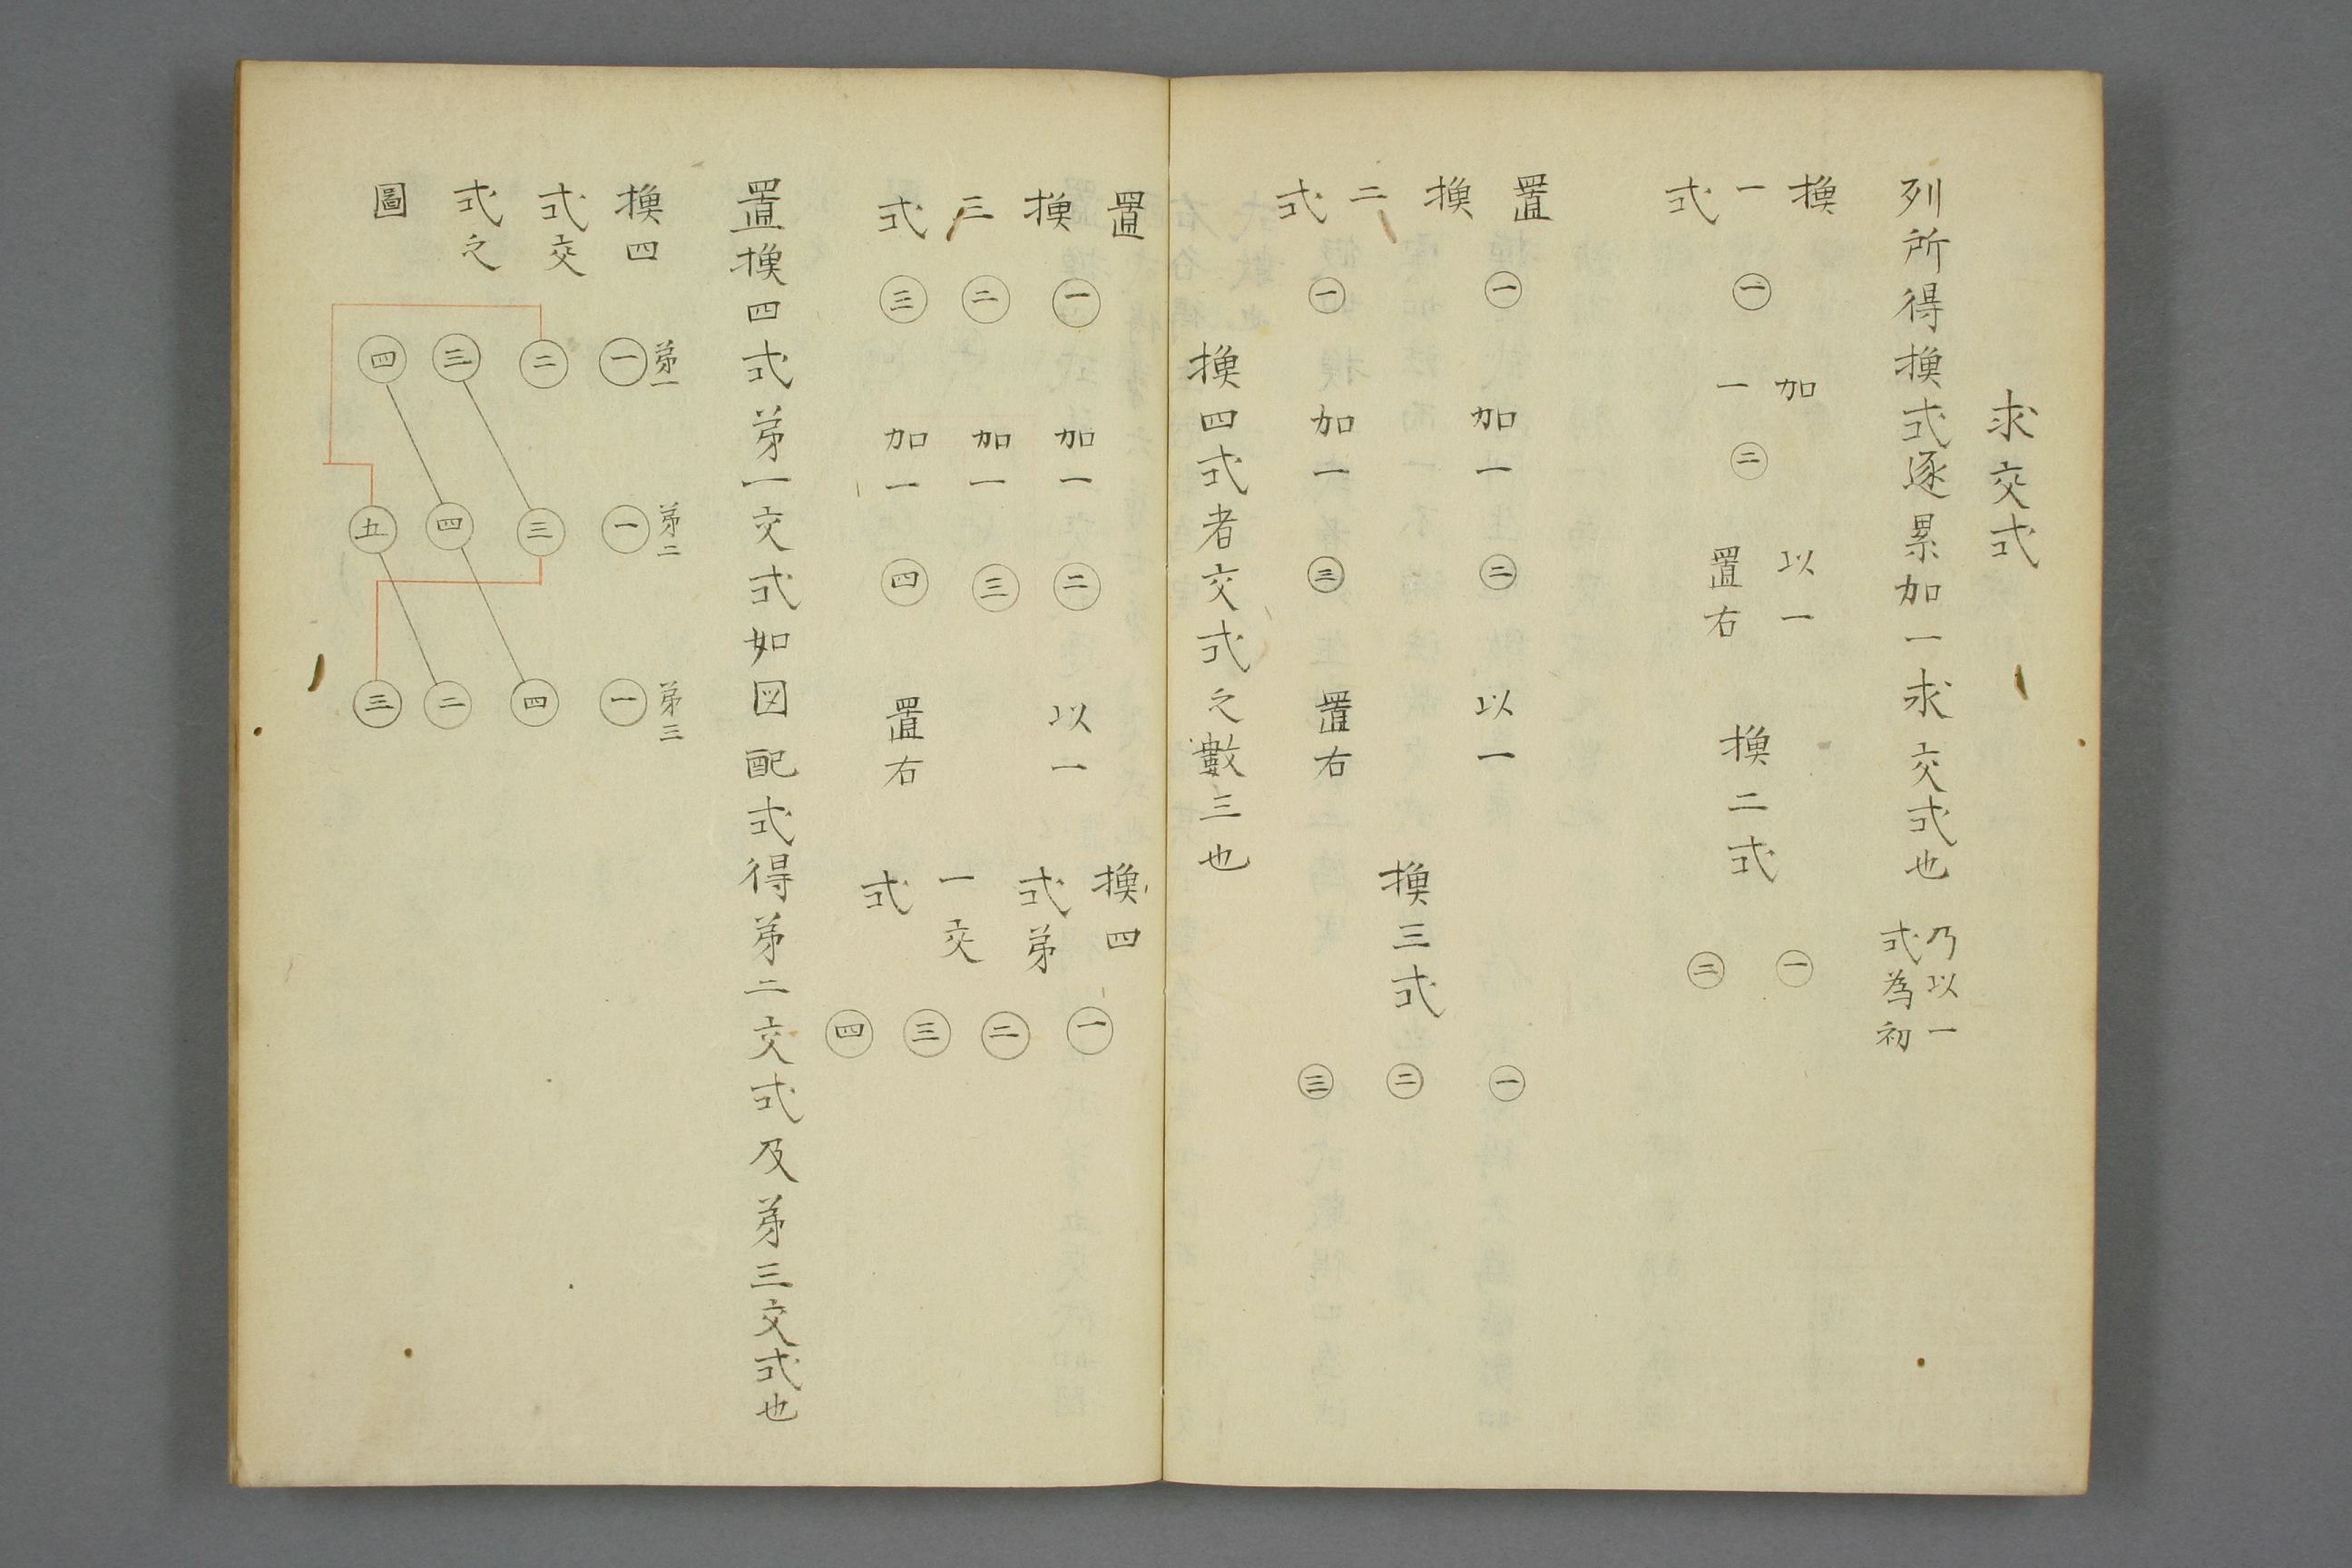 求交式
列所得換式逐累加一求交式也 乃以一
式為初
換一式
㊀
加一
㊁
以一
置右
換二式
㊀
㊁
置換二式
㊀ 加一 ㊁ 以一
㊀ 加一 ㊂ 置右
換三式
㊀
㊁
㊂
換四式者交式之數三也
置換三式
㊀ 加一 ㊁ 以一
㊁ 加一 ㊂
㊂ 加一 ㊃ 置右
換四式第一交式
㊀
㊁
㊂
㊃
置換四式第一交式如図配式得第二交式及第三交式也
換四式交式之圖
第一 第二 第三
㊀ ㊀ ㊀
㊁ ㊂ ㊃
㊂ ㊃ ㊁
㊃ ㊄ ㊂